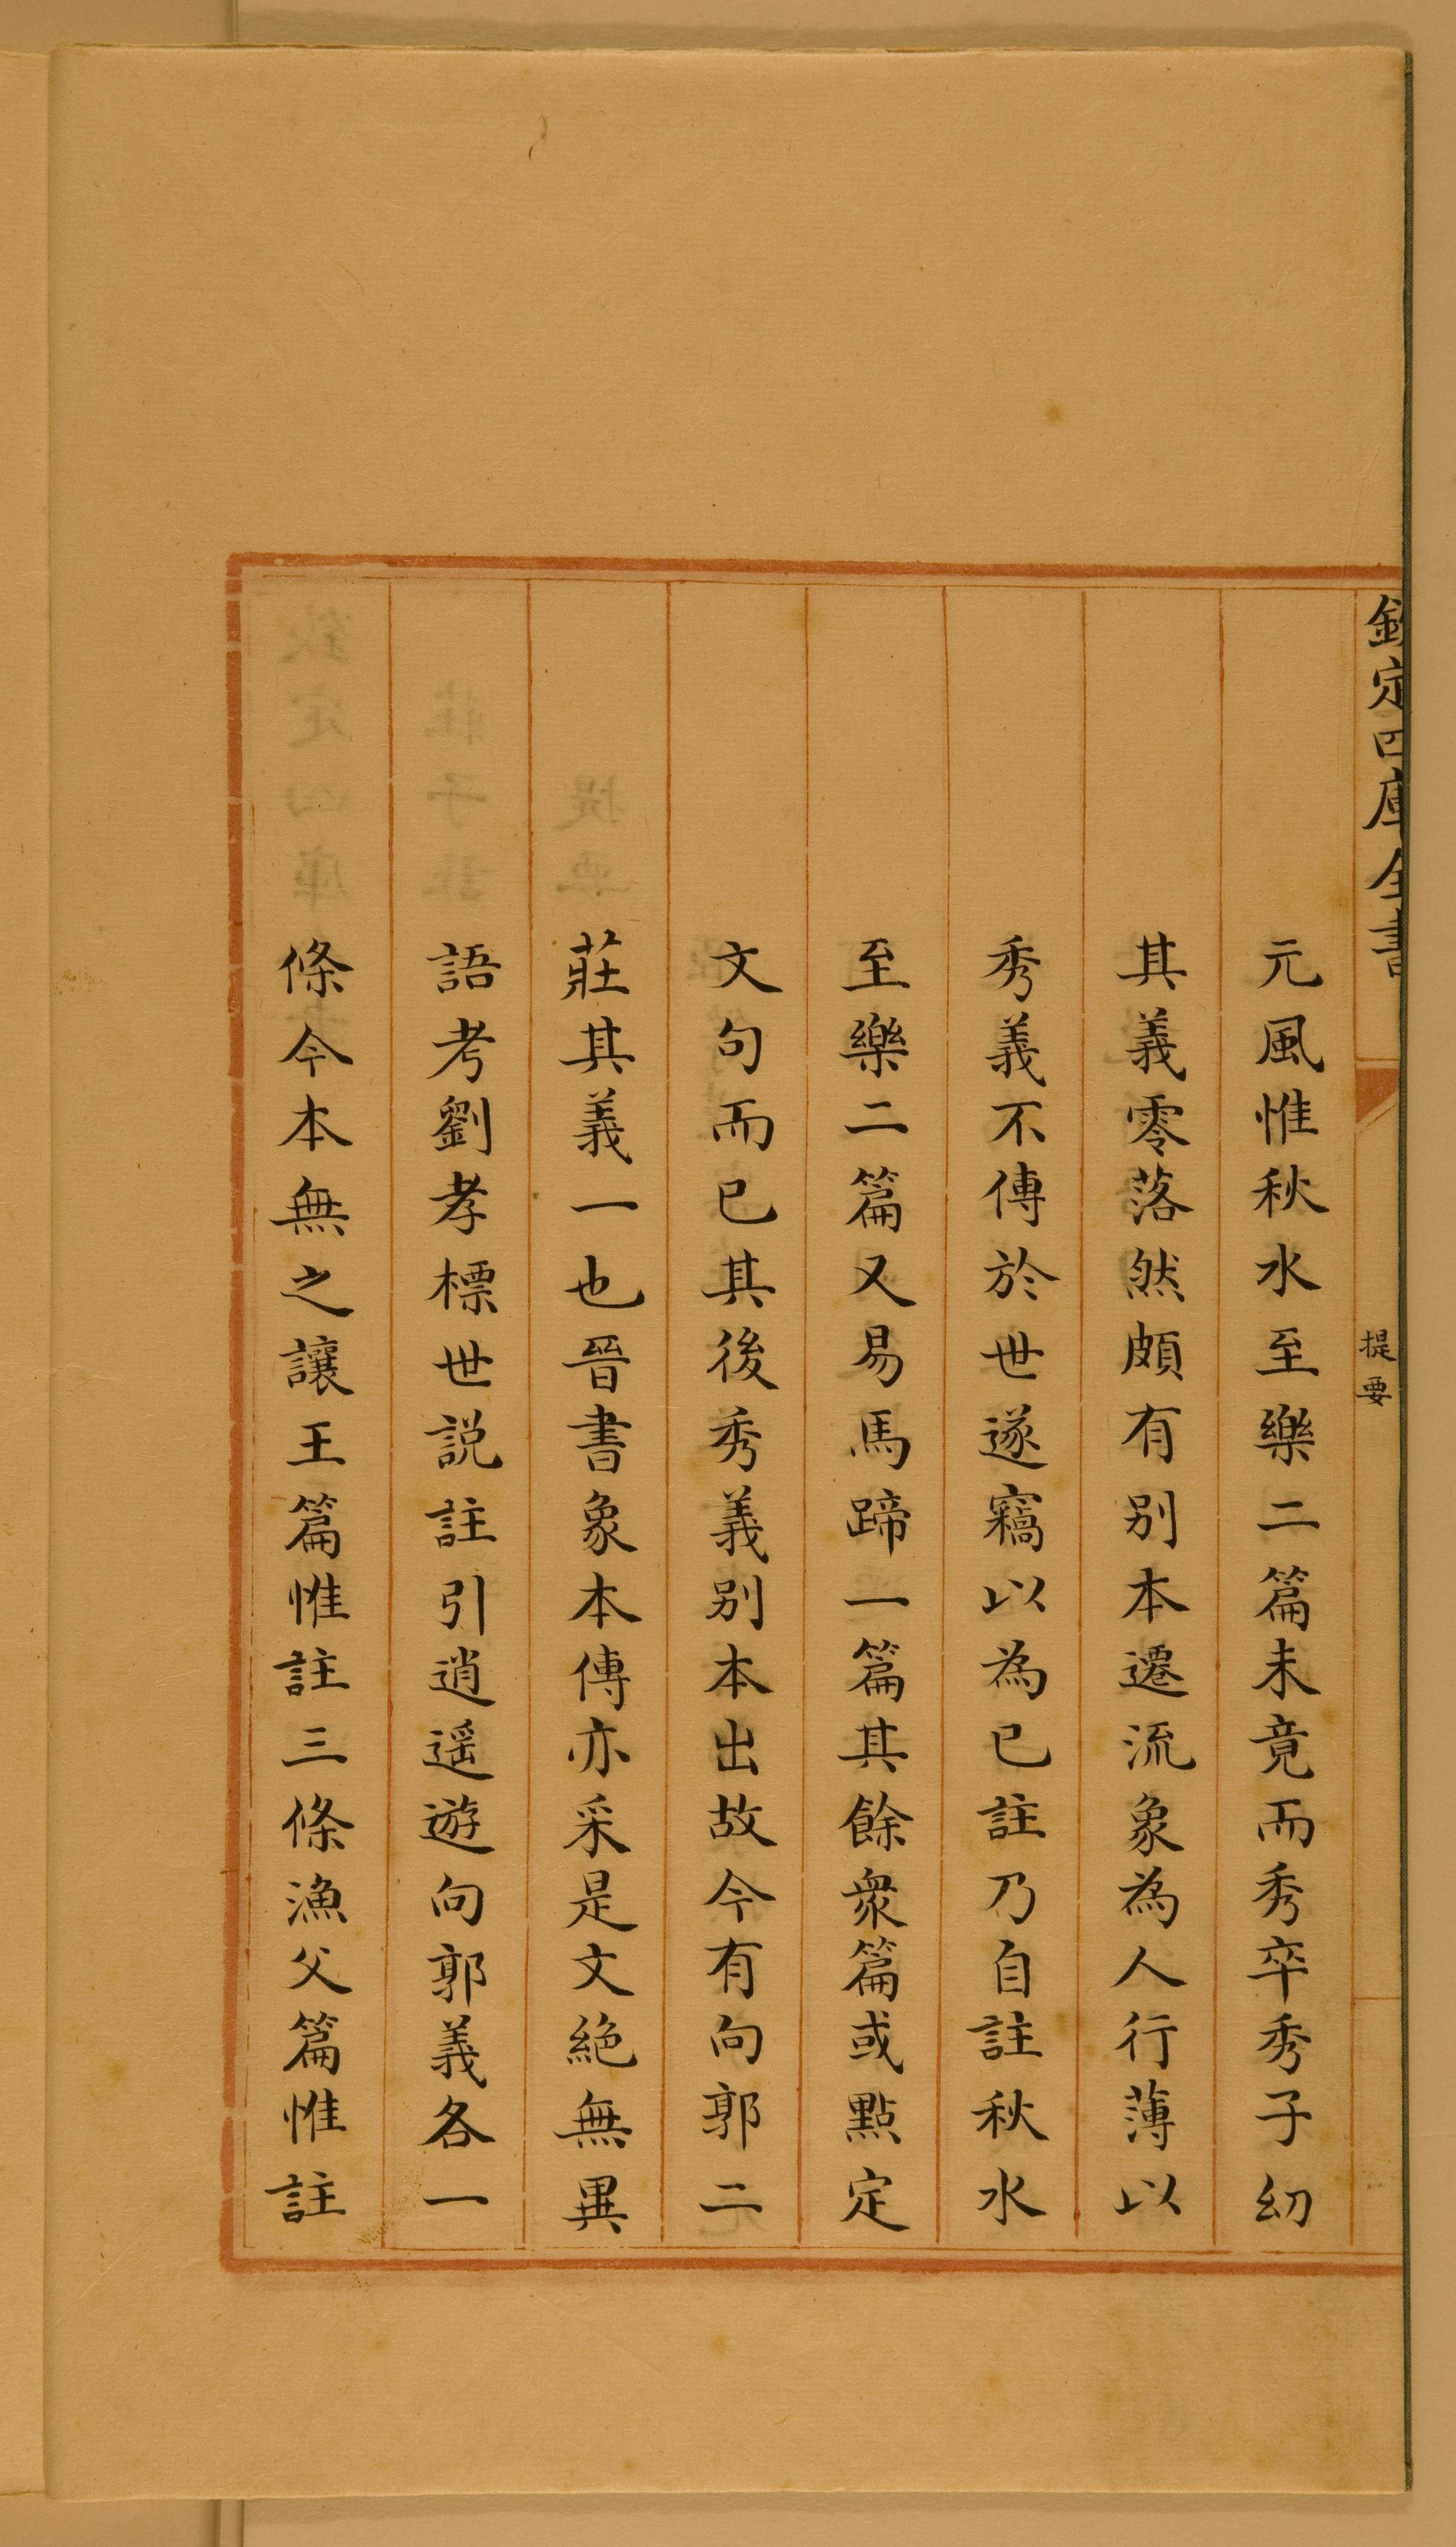 欽定四庫全書
提要
元風惟秋水至樂二篇未竟而秀卒秀子幼
其義零落然頗有别本遷流象為人行薄以
秀義不傳於世遂竊以為已註乃自註秋水
至樂二篇又易馬蹄一篇其餘衆篇或點定
文句而已其後秀義别本出故今有向郭二
莊其義一也晉書象本傳亦采是文絶無異
語考劉孝標世説註引逍遥遊向郭義各一
條今本無之讓王篇惟註三條漁父篇惟註